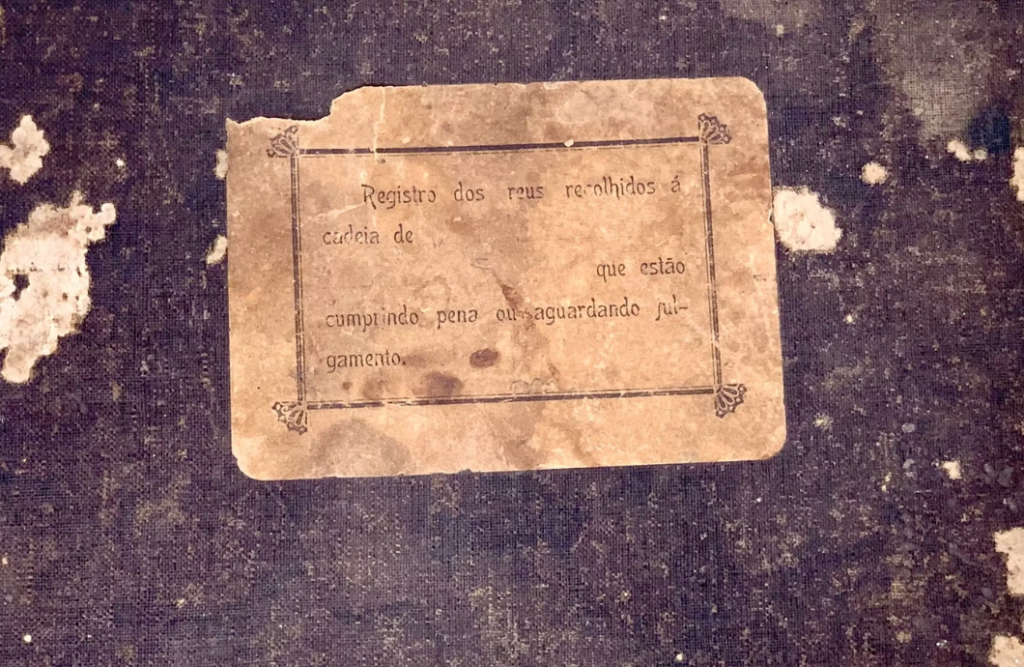 Registro dos reus recolhidos á
cadeia de
que estão
cumprindo pena ou aguardando jul-
gamento.